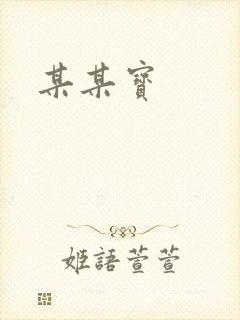 某某寶
姬語萱萱